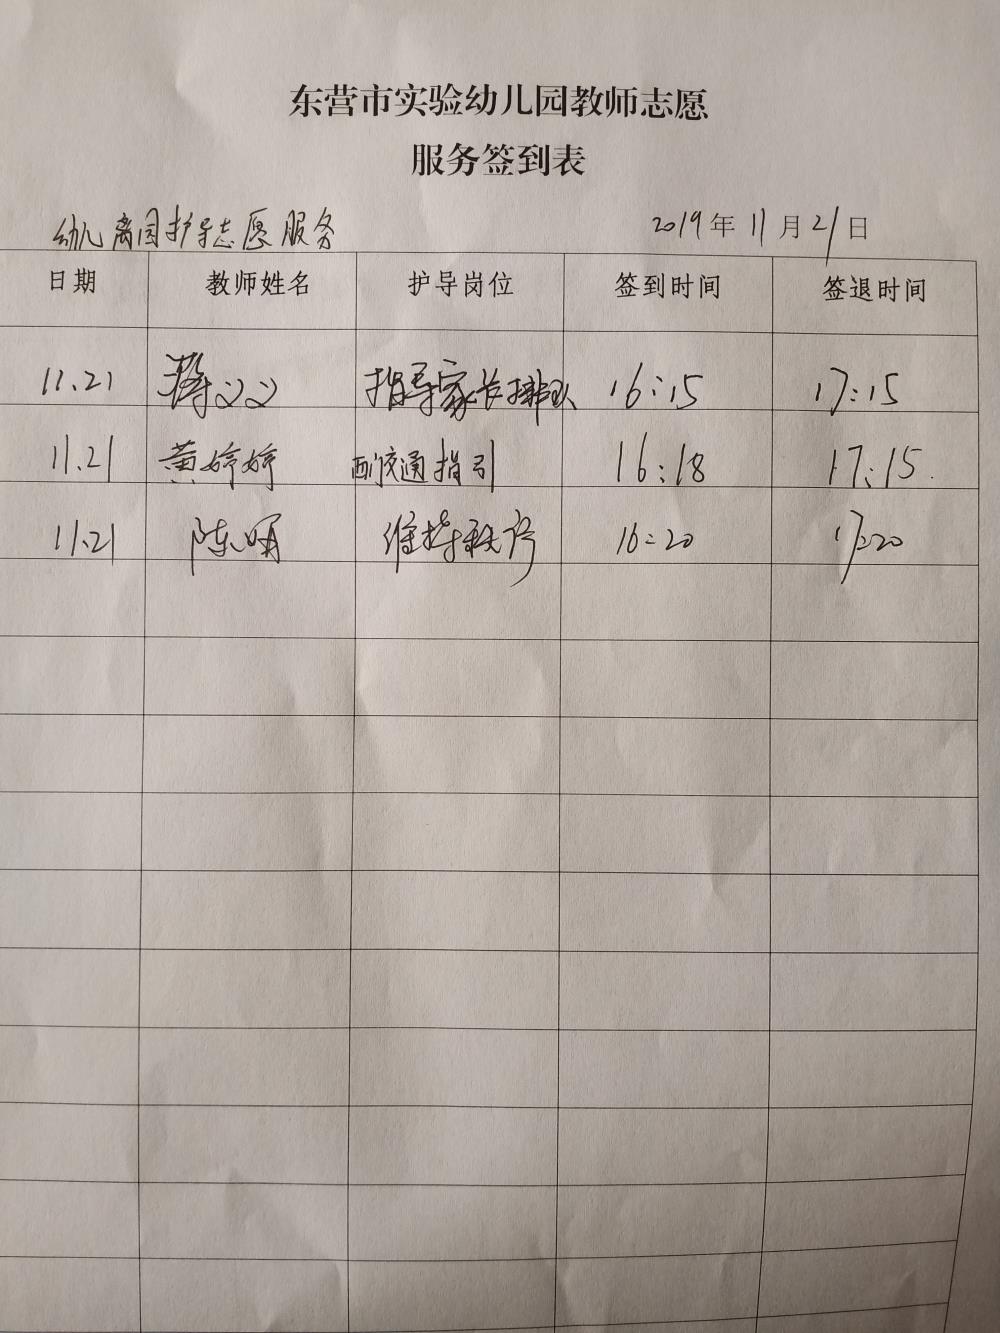 东营市实验幼儿园教师志愿
服务签到表
幼儿离园护导志愿服务 2019年11月21日
日期 教师姓名 护导岗位 签到时间 签退时间
11.21 指导家长排队 16:15 17:15
11.21 黄婷婷 西门交通指引 16:18 17:15
11.21 陈明 维持秩序 16:20 17:20